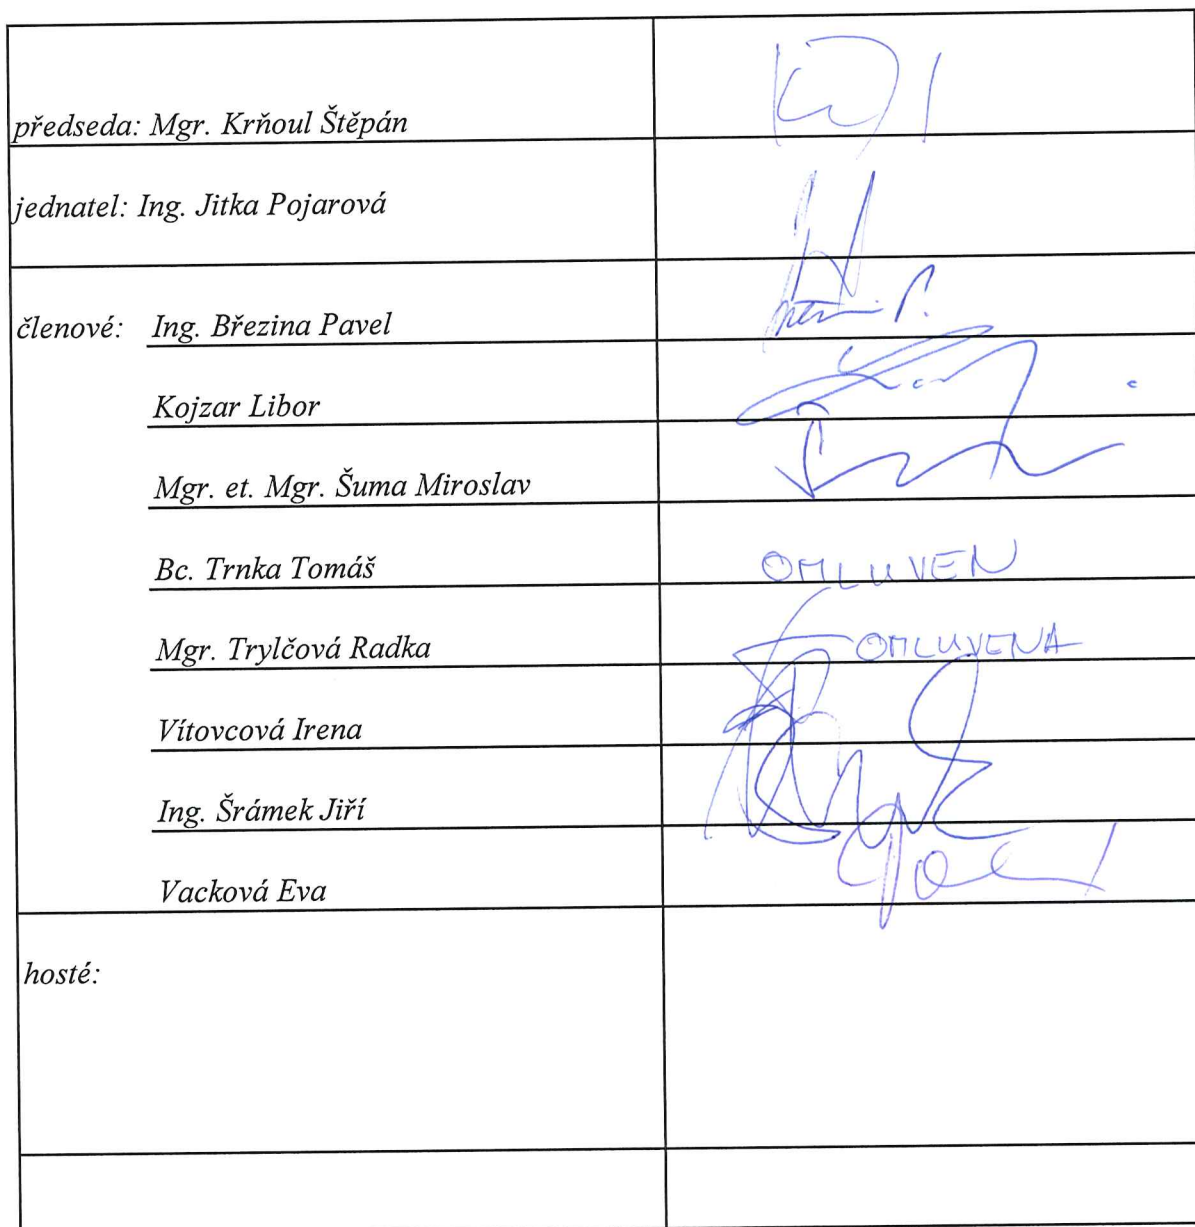 předseda: Mgr. Krňoul Štěpán
jednatel: Ing. Jitka Pojarová
členové: Ing. Březina Pavel
Kojzar Libor
Mgr. et. Mgr. Šuma Miroslav
Bc. Trnka Tomáš OMLUVEN
Mgr. Trylčová Radka OMLUVENA
Vítovcová Irena
Ing. Šrámek Jiří
Vacková Eva
hosté: